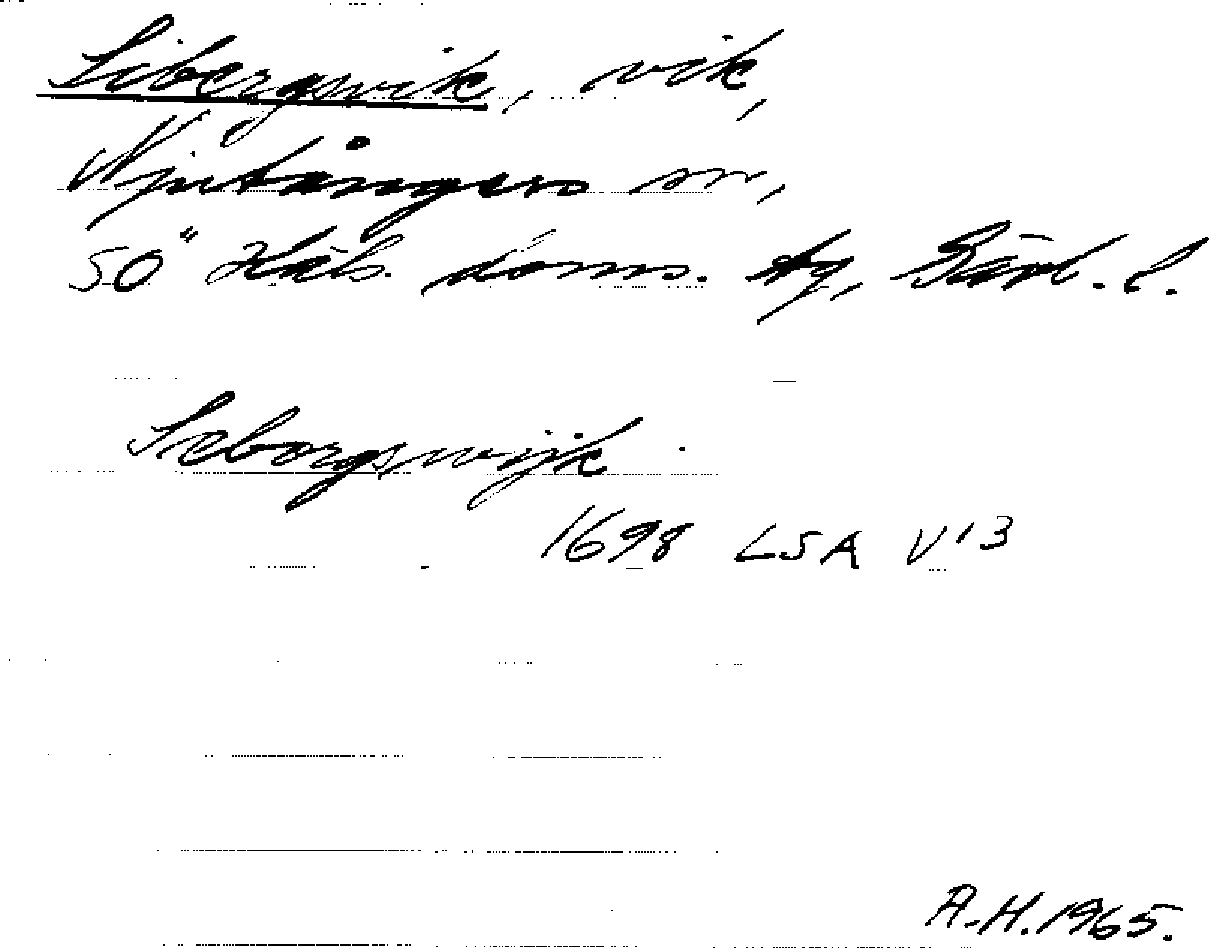 Sibergsvik, vik,
Njutångers sn,
50" Häls. doms. tg, Gävl. l.
Seborgswijk
1698 LSA V13
A.H. 1965.